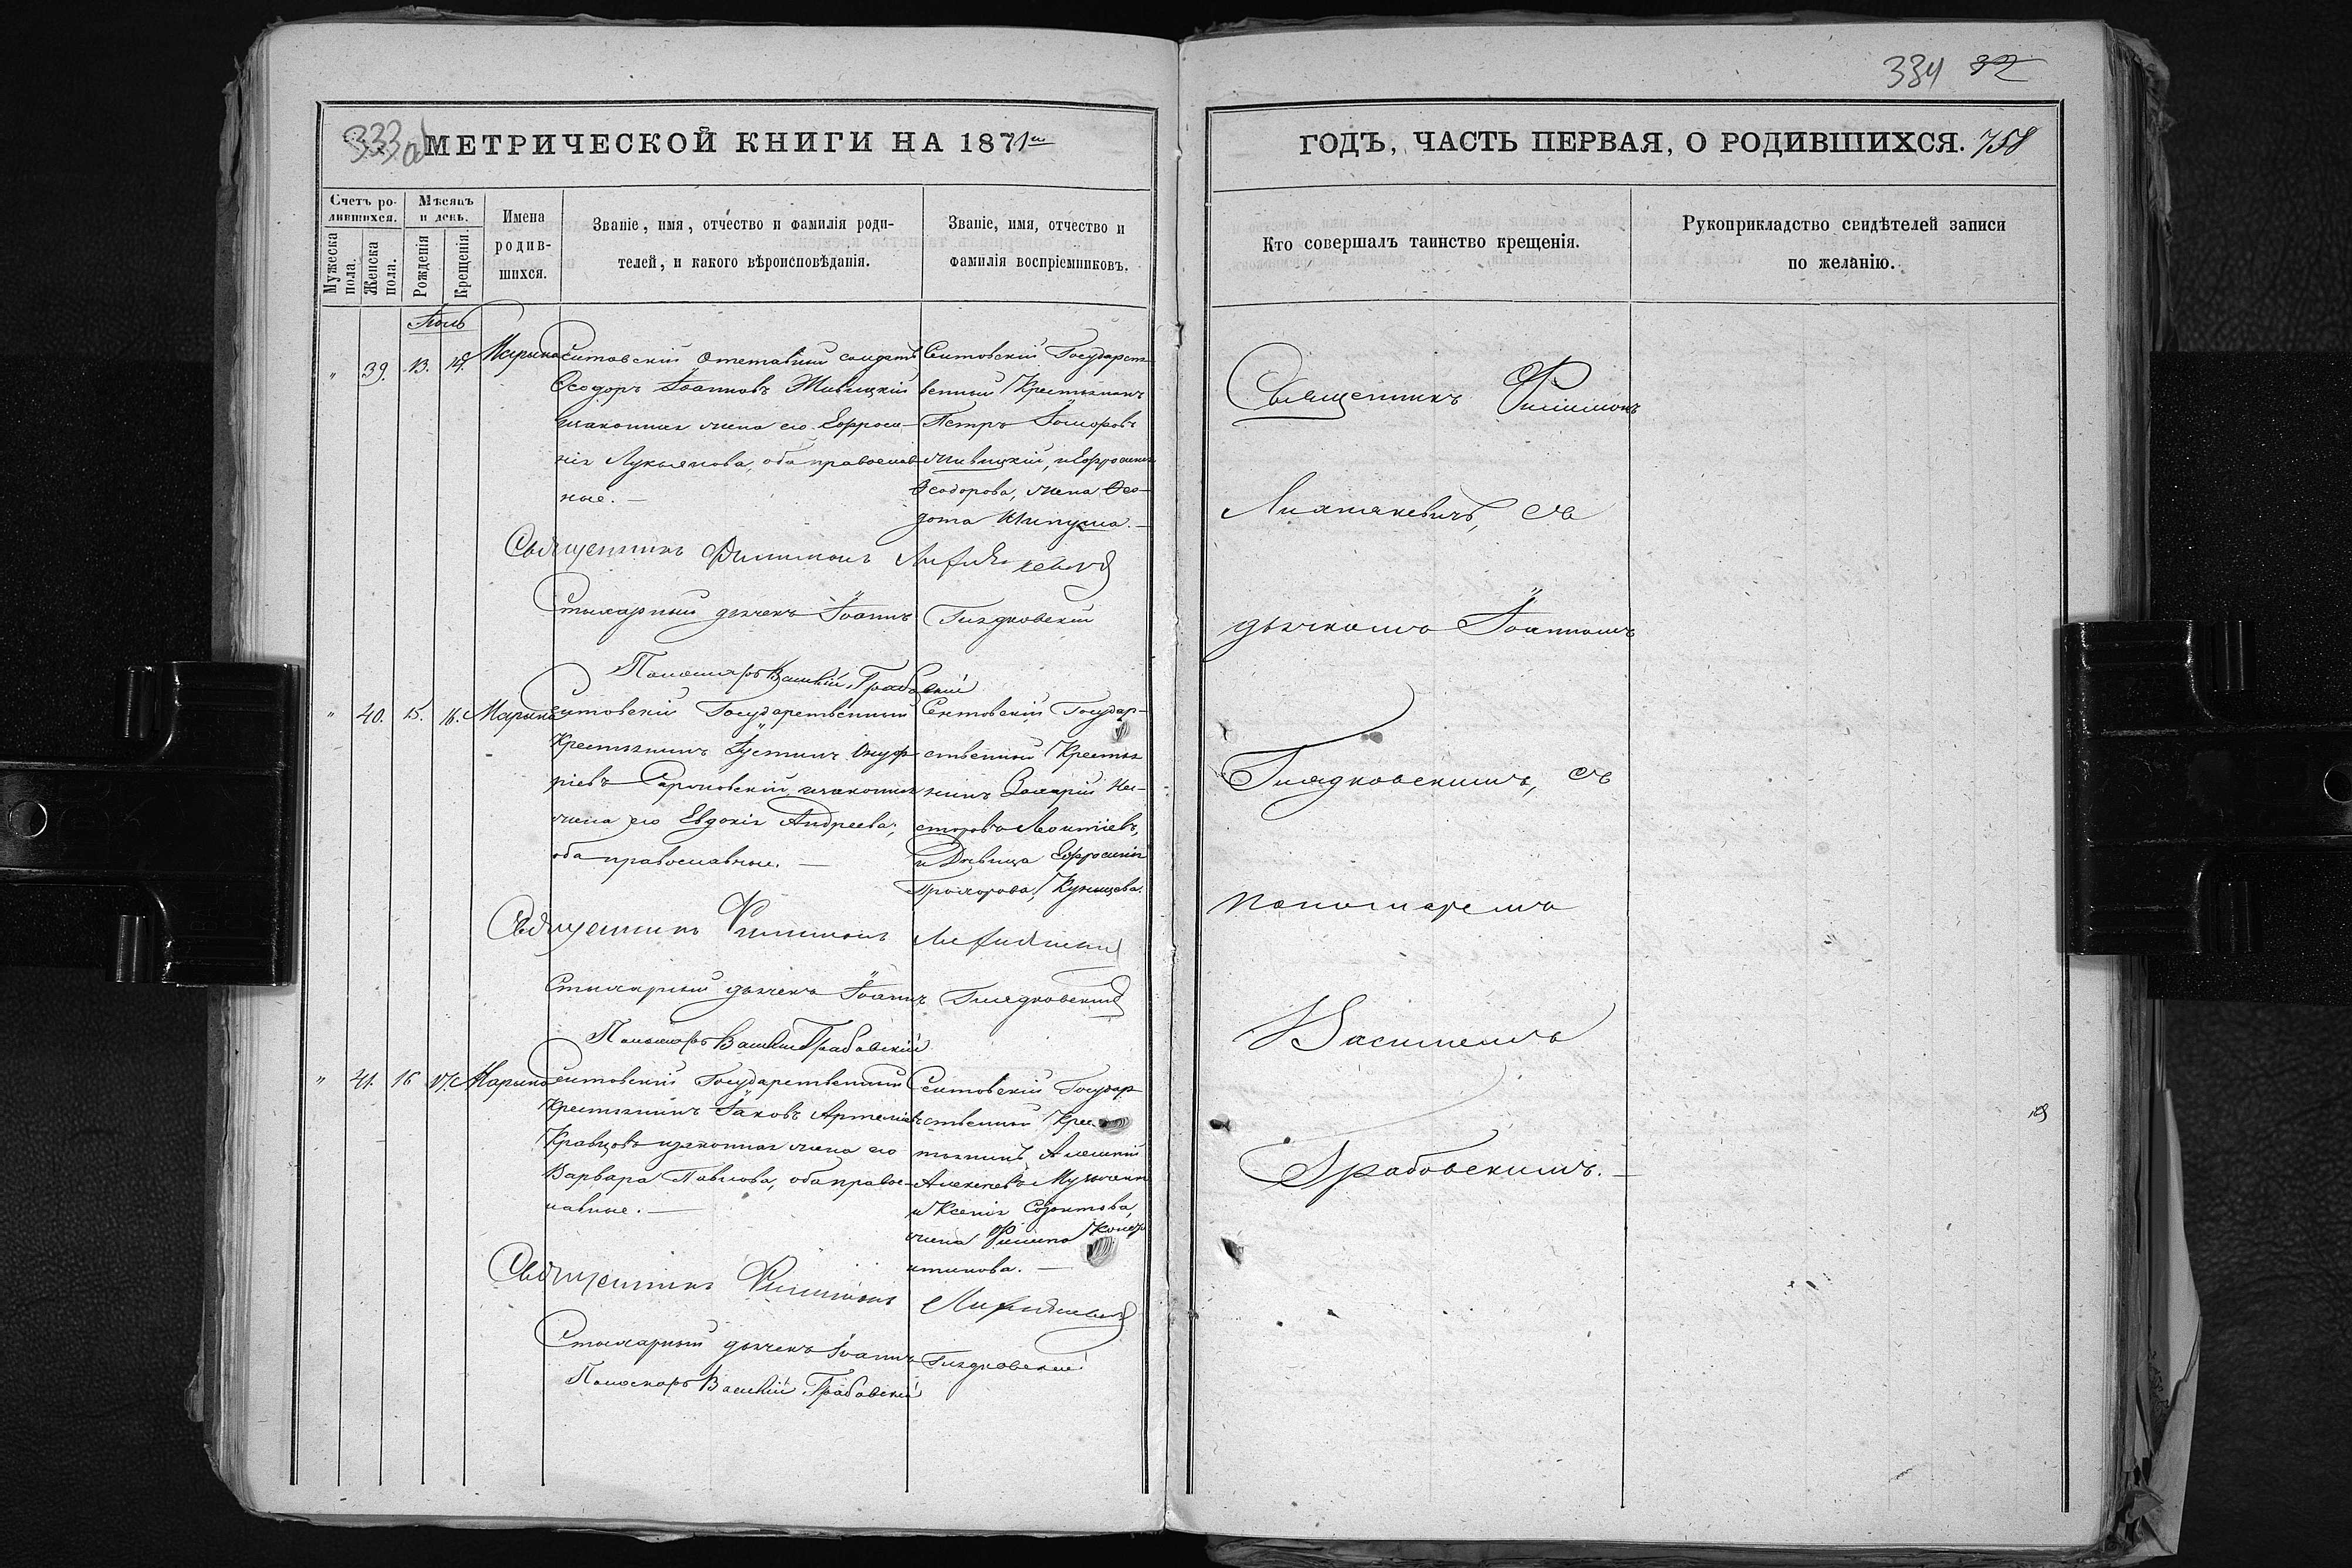 334 32
333 об
МЕТРИЧЕСКОЙ КНИГИ НА 1871й
Счетъ ро-
дившихся.
Мужеска пола.
Женска пола.
Мѣсяцъ
и день.
Рожденія
Крещенія.
Имена
родив-
шихся.
Званіе, имя, отчество и фамилія роди-
телей, и какого вѣроисповѣданія.
Званіе, имя, отчество и
фамилія воспріемниковъ.
Іюль
" 39. 13. 14. Марина
Ситовскій Отставный солдатъ
Ѳеодоръ Іоанновъ Живицкій
изаконная жена его Евфроси-
нія Лукьянова, оба православ-
ные. —
Ситовскій Государст-
венный Крестьянинъ
Петръ
Живицкій, и Евфросинія
Ѳеодорова, жена Ѳео-
дота
Священникъ Филимонъ
Стихарный дьячекъ Іоаннъ Гнядковскій
Пономарь Василій Грабовскій
" 40. 15. 16. Марина
Ситовскій Государственный
Крестьянинъ Іустинъ Онуф-
ріевъ изаконная
жена его Евдокія Андреева,
оба православные. —
Ситовскій Государ-
ственный Крестья-
нинъ Не-
сторовъ Леонтіевъ,
и Дѣвица Евфросинія
Прохорова,
Священникъ Филимонъ
Стихарный дьячекъ Іоаннъ Гнядковскій
Пономарь Василій Грабовскій
" 41. 16 17. Марина
Ситовскій Государственный
Крестьянинъ Іаковъ Артеміевъ
Кравцовъ изаконная жена его
Варвара Павлова, оба правос-
лавные. —
Ситовскій Государ-
ственный Крес-
тьянинъ Алексій
Алексѣевъ
и Ксенія
жена Филипа
Священникъ Филимонъ
Стихарный дьячекъ Іоаннъ Гнядковскій
Пономарь Василій Грабовскій
ГОДЪ, ЧАСТЬ ПЕРВАЯ, О РОДИВШИХСЯ. 758
Кто совершалъ таинство крещенія.
Рукоприкладство свидѣтелей записи
по желанію.
Священникъ Филимонъ
съ
дьячкомъ Іоанномъ
Гнядковскимъ, съ
пономаремъ
Василіемъ
Грабовскимъ. —